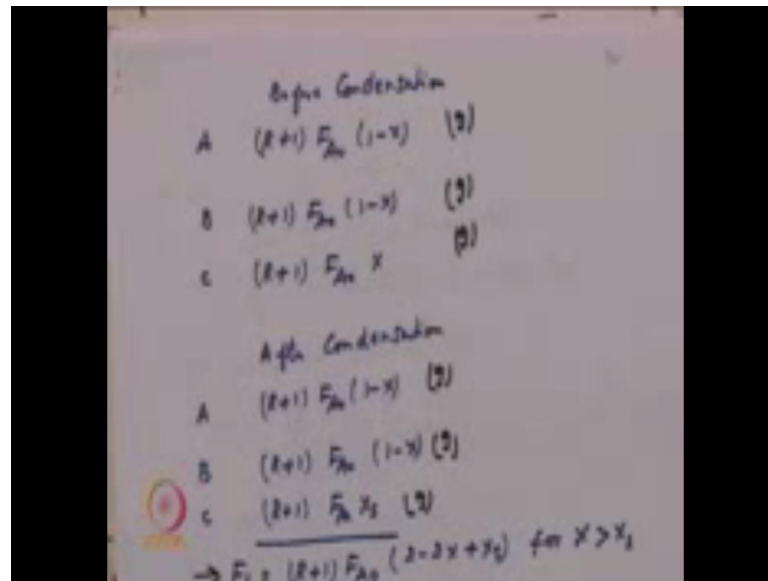 Before Condensation
A (R+1) F_A0 (1-X) (g)
B (R+1) F_A0 (1-X) (g)
C (R+1) F_A0 X (g)
After Condensation
A (R+1) F_A0 (1-X) (g)
B (R+1) F_A0 (1-X) (g)
C (R+1) F_A0 X_s (g)
→ F_t = (R+1) F_A0 (2-2X+X_s) for X > X_s